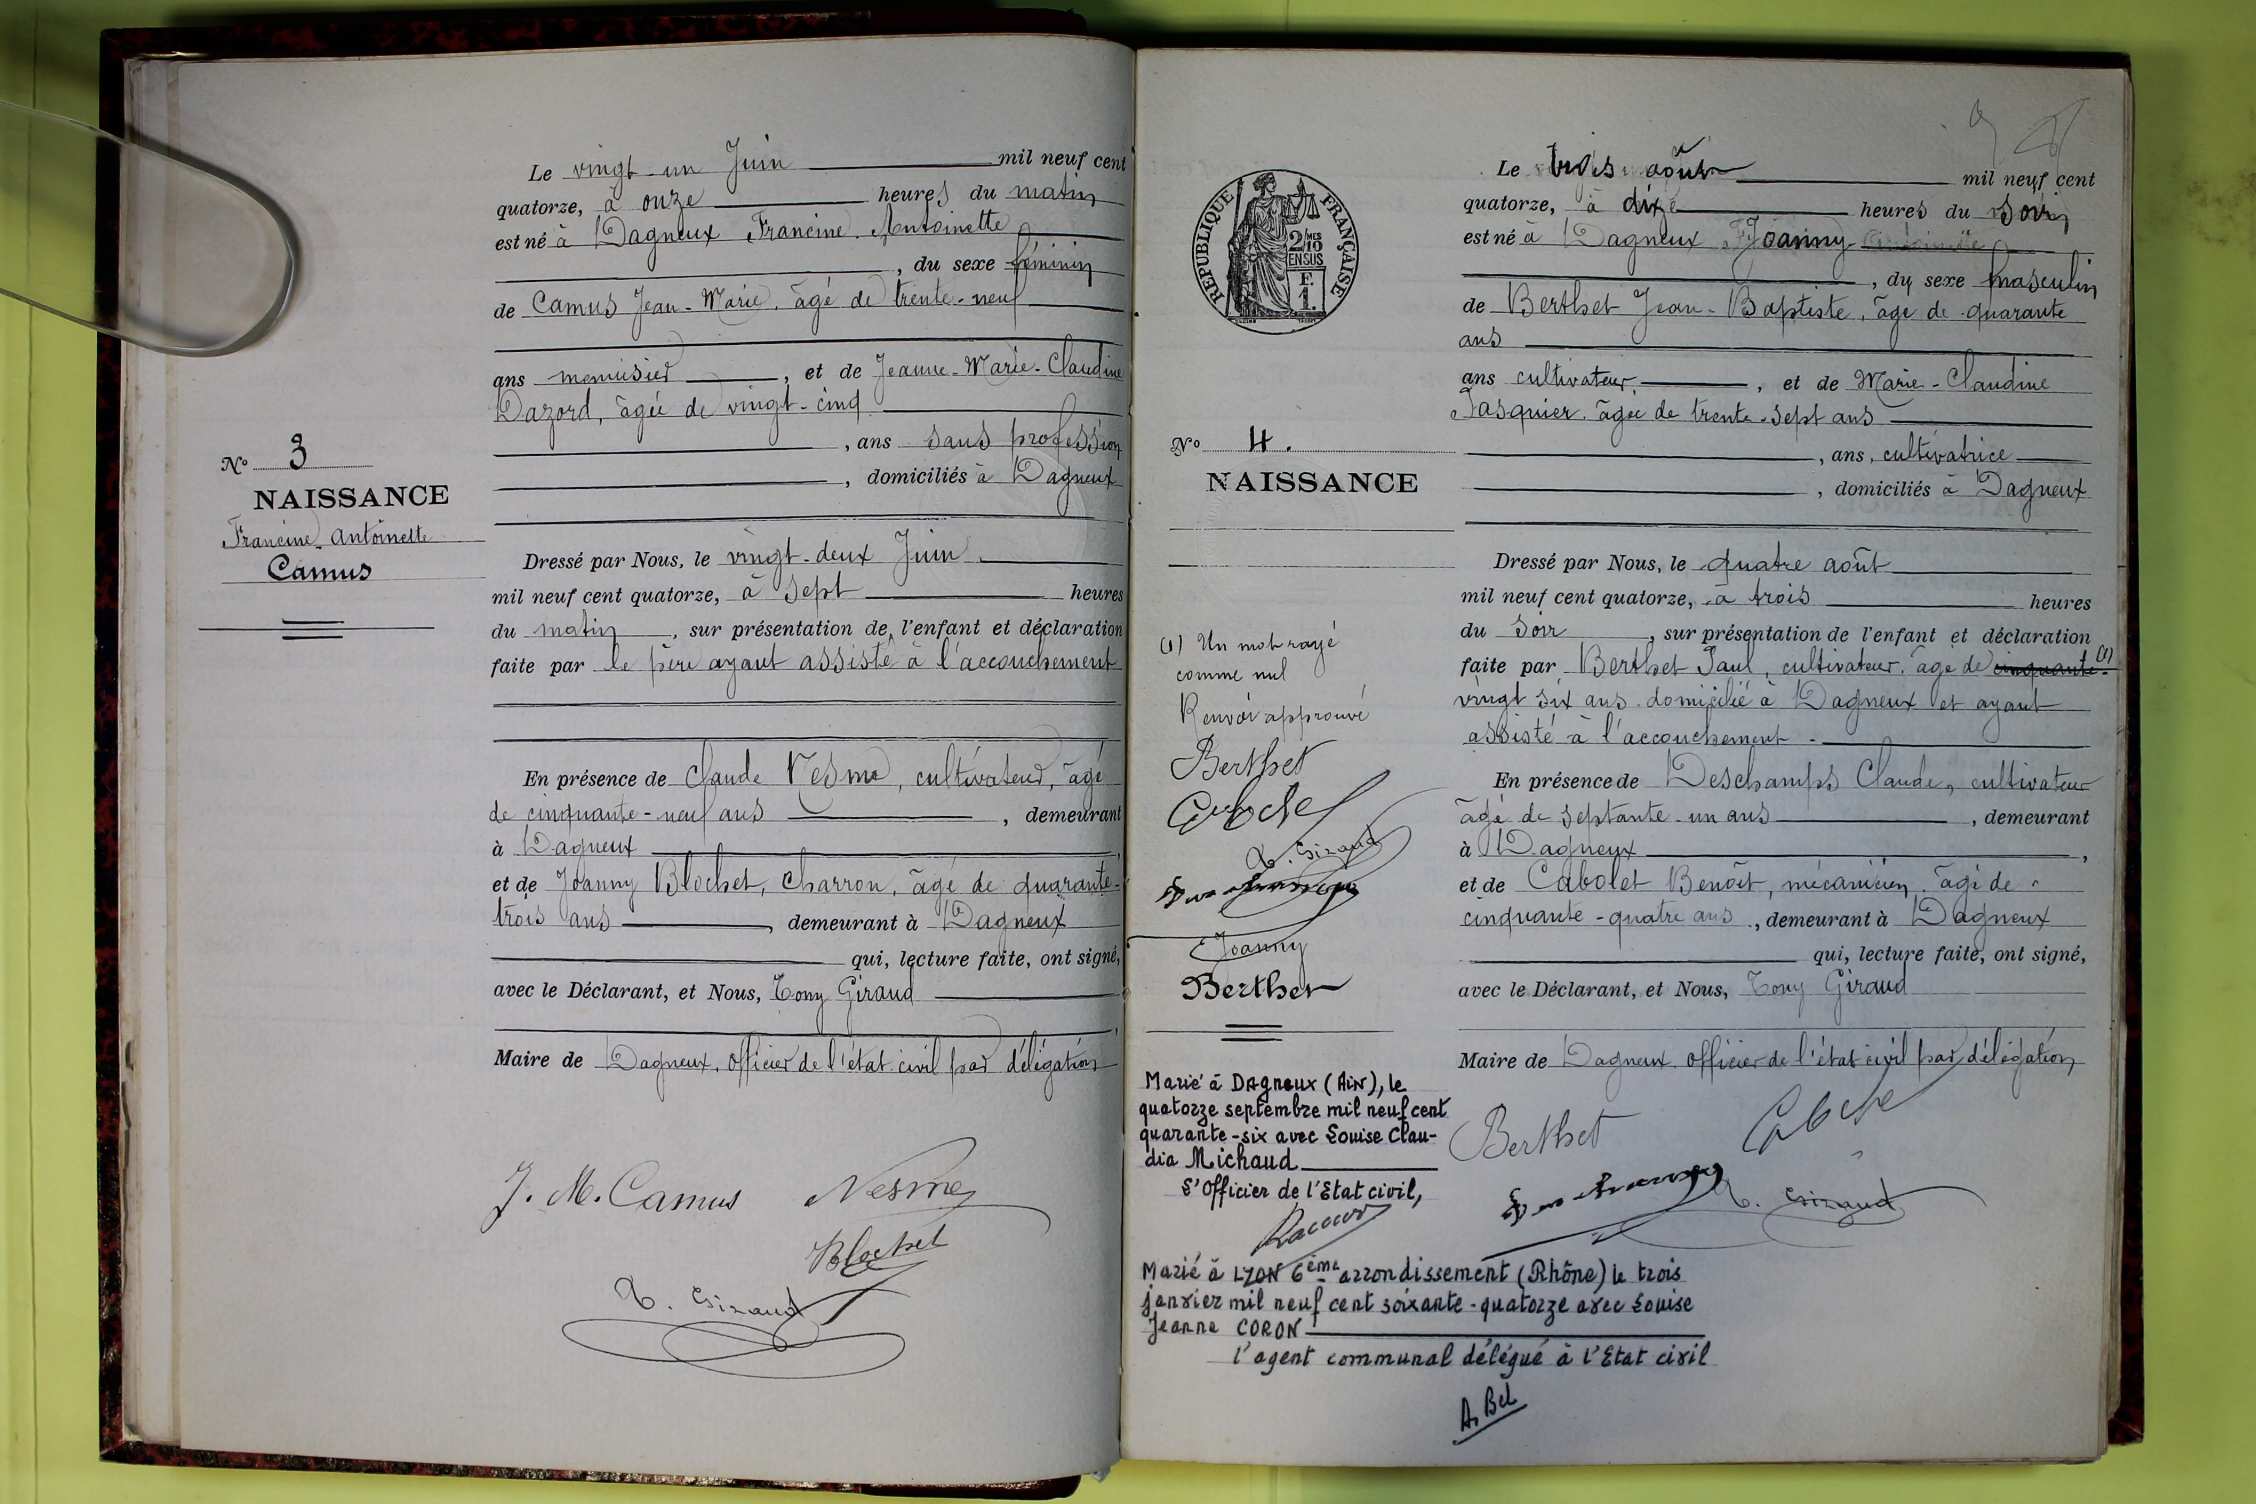 Le vingt-un Juin mil neuf cent
quatorze, à onze heures du matin
est né à Dagneux Francine Antoinette
, du sexe féminin
de Camus Jean-Marie, âgé de trente-neuf
ans menuisier, et de Jeanne-Marie-Claudine
Dazord, âgée de vingt-cinq
, ans sans profession
, domiciliés à Dagneux
No 3
NAISSANCE
Francine Antoinette
Camus
Dressé par Nous, le vingt-deux Juin
mil neuf cent quatorze, à sept heures
du matin, sur présentation de l'enfant et déclaration
faite par le père ayant assisté à l'accouchement
En présence de Claude Nesme, cultivateur, âgé
de cinquante-neuf ans, demeurant
à Dagneux,
et de Joanny Blochet, charron, âgé de quarante-
trois ans, demeurant à Dagneux
qui, lecture faite, ont signé,
avec le Déclarant, et Nous, Tony Giraud
,
Maire de Dagneux, officier de l'état civil par délégation
J. M. Camus Nesme
Blochet
T. Giraud
Le trois août mil neuf cent
quatorze, à dix heures du soir
est né à Dagneux Joanny
, du sexe masculin
de Berthet Jean-Baptiste, âgé de quarante
ans
ans cultivateur, et de Marie-Claudine
Pasquier âgée de trente-sept ans
, ans, cultivatrice
, domiciliés à Dagneux
RÉPUBLIQUE FRANÇAISE
2/10 MES
EN SUS
F.
1.
No 4.
NAISSANCE
Dressé par Nous, le quatre août
mil neuf cent quatorze, à trois heures
du soir, sur présentation de l'enfant et déclaration
faite par Berthet Paul, cultivateur, âgé de cinquante- (1)
vingt six ans domicilié à Dagneux et ayant
assisté à l'accouchement.
En présence de Deschamps Claude, cultivateur
âgé de septante-un ans, demeurant
à Dagneux,
et de Cabolet Benoît, mécanicien, âgé de
cinquante-quatre ans, demeurant à Dagneux
qui, lecture faite, ont signé,
avec le Déclarant, et Nous, Tony Giraud
Maire de Dagneux officier de l'état civil par délégation
(1) Un mot rayé
comme nul
Renvoi approuvé
Berthet
T. Giraud
Joanny
Berthet
Marié à DAgneux (Ain), le
quatorze septembre mil neuf cent
quarante-six avec Louise Clau-
dia Michaud
L'Officier de l'Etat civil,
Berthet
T. Giraud
Marié à LYON 6ème arrondissement (Rhône) le trois
janvier mil neuf cent soixante-quatorze avec Louise
Jeanne CORON
l'agent communal délégué à l'Etat civil
A. Bel